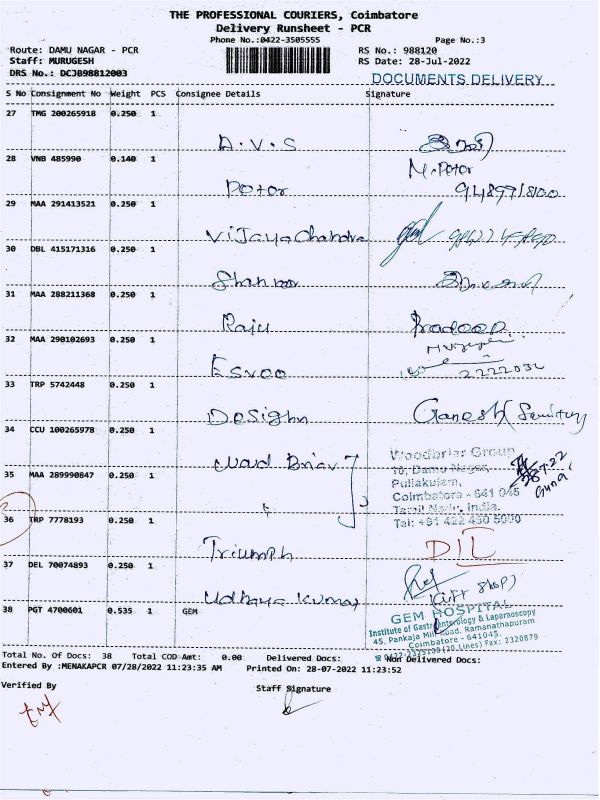 THE PROFESSIONAL COURIERS, Coimbatore
Delivery Runsheet - PCR
Phone No.:0422-3505555 Page No.:3
Route: DAMU NAGAR - PCR RS No.: 988120
Staff: MURUGESH RS Date: 28-Jul-2022
DRS No.: DCJB98812003 DOCUMENTS DELIVERY
S No Consignment No Weight PCS Consignee Details Signature
27 TMG 200265918 0.250 1
A.V.S
28 VNB 485990 0.140 1
Potor M.Potor
29 MAA 291413521 0.250 1
Vijaya Chandra
30 DBL 415171316 0.250 1
31 MAA 288211368 0.250 1
Raju Pradeep
32 MAA 290102693 0.250 1
Esvoo 2222032
33 TRP 5742448 0.250 1
Design Ganesh
34 CCU 100265978 0.250 1
Woodbriar Group
10, Damu Nagar,
35 MAA 289990847 0.250 1 Puliakulam,
Coimbatore - 641 045
Tamil Nadu, India.
36 TRP 7778193 0.250 1 Tel: +91 422 430 5000
Triumph DIL
37 DEL 70074893 0.250 1
Udhaya Kumar (Gift Shop)
38 PGT 4700601 0.535 1 GEM
GEM HOSPITAL
Institute of Gastroenterology & Laparoscopy
45, Pankaja Mill Road, Ramanathapuram
Coimbatore - 641045.
(20 Lines) Fax: 2320879
Total No. Of Docs: 38 Total COD Amt: 0.00 Delivered Docs: Non Delivered Docs:
Entered By :MENAKAPCR 07/28/2022 11:23:35 AM Printed On: 28-07-2022 11:23:52
Verified By Staff Signature